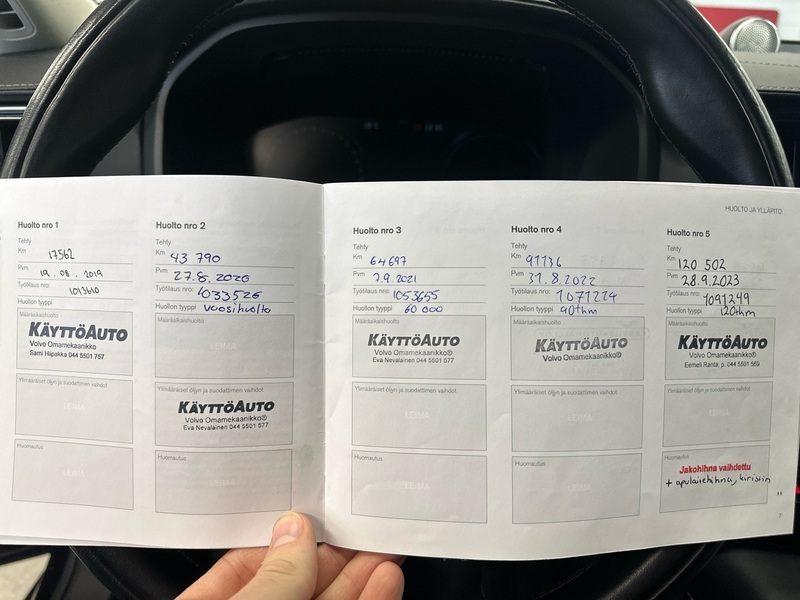 HUOLTO JA YLLÄPITO
Huolto nro 1
Tehty
Km 17562
Pvm 19.08.2019
Työtilaus nro: 1013610
Huollon tyyppi
Määräaikaishuolto
KÄYTTÖAUTO
Volvo Omamekaanikko
Sami Hiipakka 044 5501 757
Ylimääräiset öljyn ja suodattimen vaihdot
LEIMA
Huomautus
LEIMA
Huolto nro 2
Tehty
Km 43 790
Pvm 27.8.2020
Työtilaus nro: 1033526
Huollon tyyppi Vuosihuolto
Määräaikaishuolto
LEIMA
Ylimääräiset öljyn ja suodattimen vaihdot
KÄYTTÖAUTO
Volvo Omamekaanikko®
Eva Nevalainen 044 5501 577
Huomautus
LEIMA
Huolto nro 3
Tehty
Km 64697
Pvm 7.9.2021
Työtilaus nro: 1053655
Huollon tyyppi 60 000
Määräaikaishuolto
KÄYTTÖAUTO
Volvo Omamekaanikko®
Eva Nevalainen 044 5501 577
Ylimääräiset öljyn ja suodattimen vaihdot
LEIMA
Huomautus
LEIMA
Huolto nro 4
Tehty
Km 91136
Pvm 31.8.2022
Työtilaus nro: 1071224
Huollon tyyppi 90thm
Määräaikaishuolto
KÄYTTÖAUTO
Volvo Omamekaanikko®
Ylimääräiset öljyn ja suodattimen vaihdot
LEIMA
Huomautus
LEIMA
Huolto nro 5
Tehty
Km 120 502
Pvm 28.9.2023
Työtilaus nro: 1091249
Huollon tyyppi 120thm
Määräaikaishuolto
KÄYTTÖAUTO
Volvo Omamekaanikko®
Eemeli Ranta, p. 044 5501 569
Ylimääräiset öljyn ja suodattimen vaihdot
LEIMA
Huomautus
Jakohihna vaihdettu
+ apulaitehihna, kiristin
2